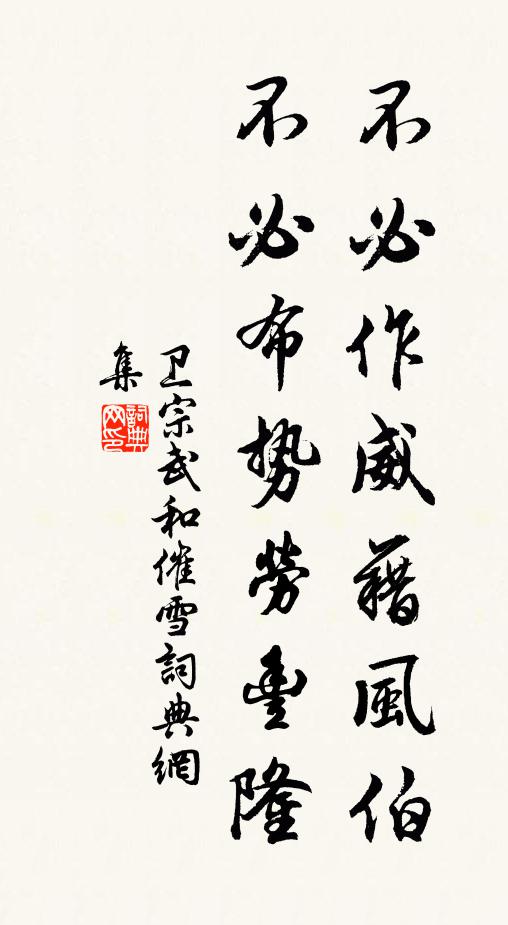 不必作威藉風伯
不必布势勞豊隆
卫宗武和催雪詞典網
集
詞典网印